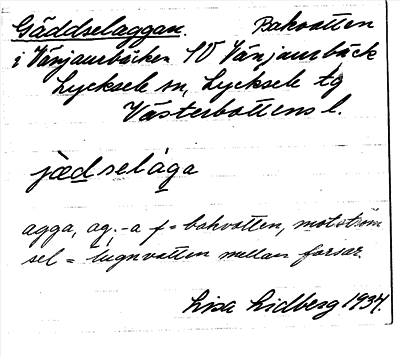 Gäddselaggan. Bakvatten
i Vänjaurbäcken SV Vänjaurbäck
Lycksele sn, Lycksele tg
Västerbottens l.
jædselaga
agga, ag,-a f = bakvatten, motström
sel = lugnvatten mellan forsar.
Lisa Lidberg 1934.